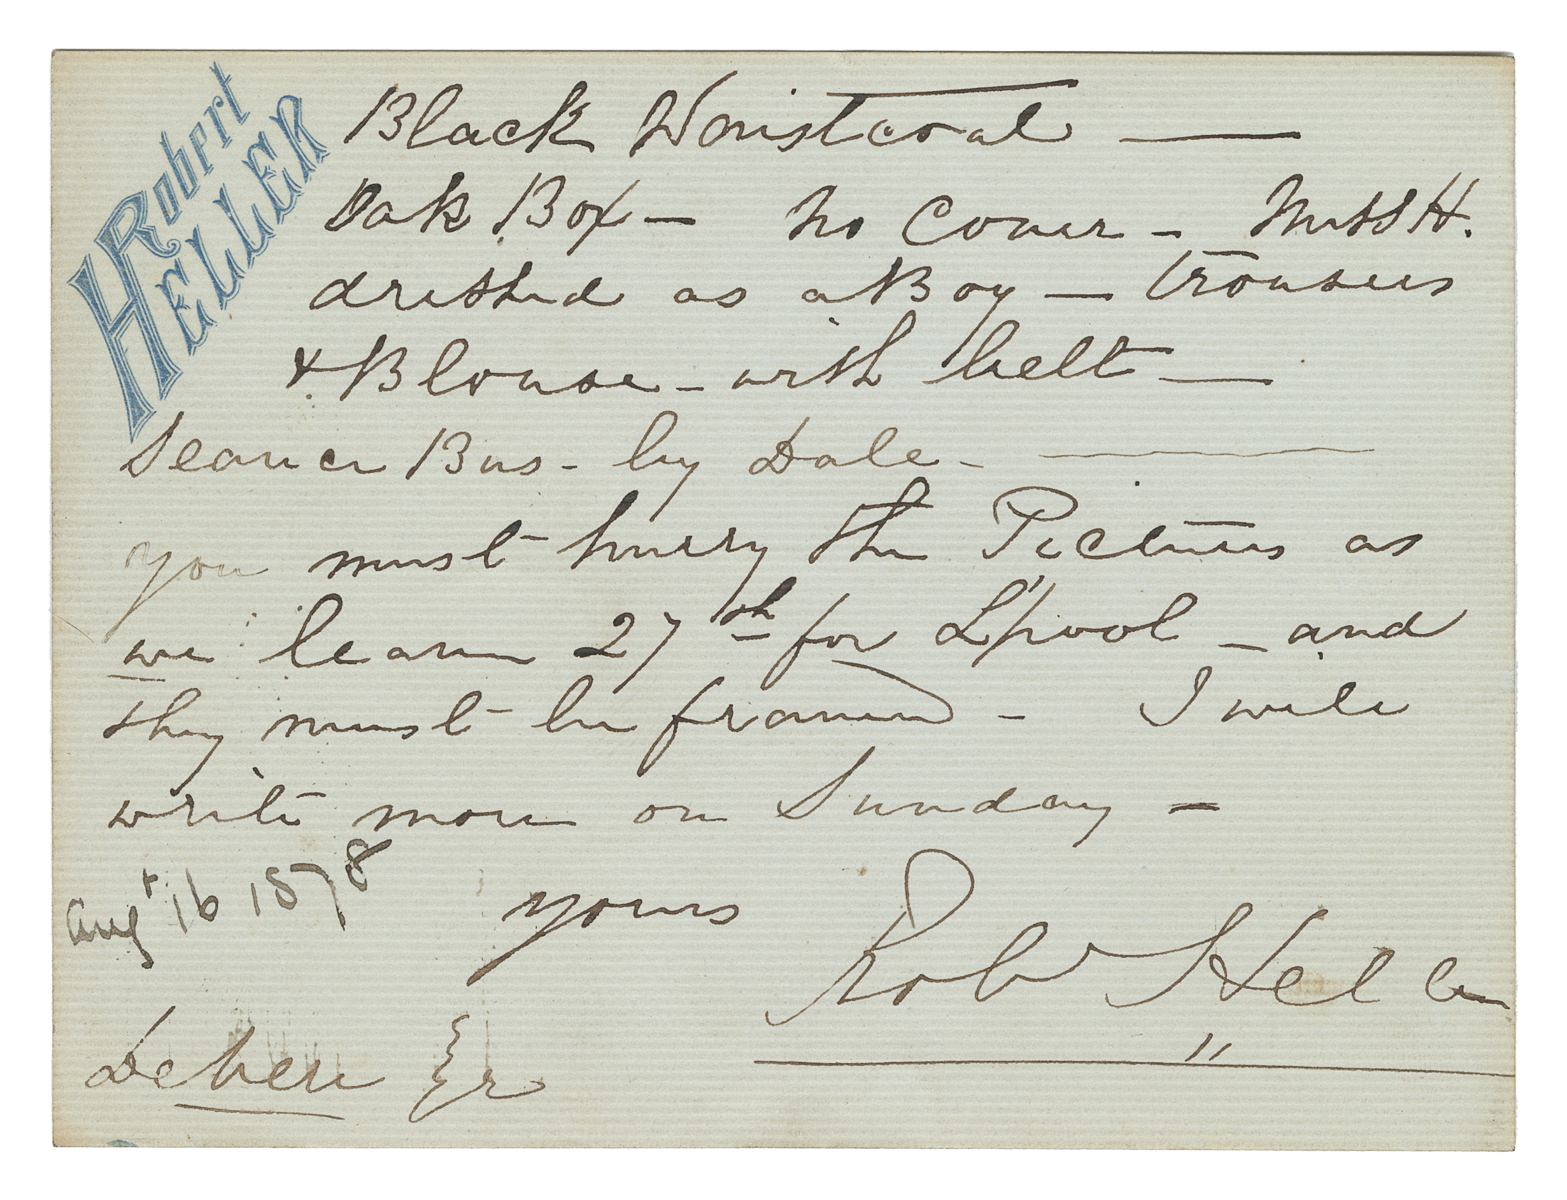 Robert
HELLER
Black Waistcoat —
Oak Box — no Cover — Miss H.
dressed as a Boy — trousers
& Blouse — with belt —
Seance Bus - by Dale - —
you must hurry the Pictures as
we leave 27th for L'pool — and
they must be framed — I will
write more on Sunday —
Augt 16 1878
yours
Robt Heller
Esqr